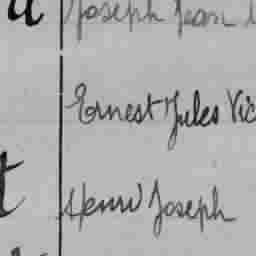 Joseph Jean
Ernest Jules Vic
Henri Joseph